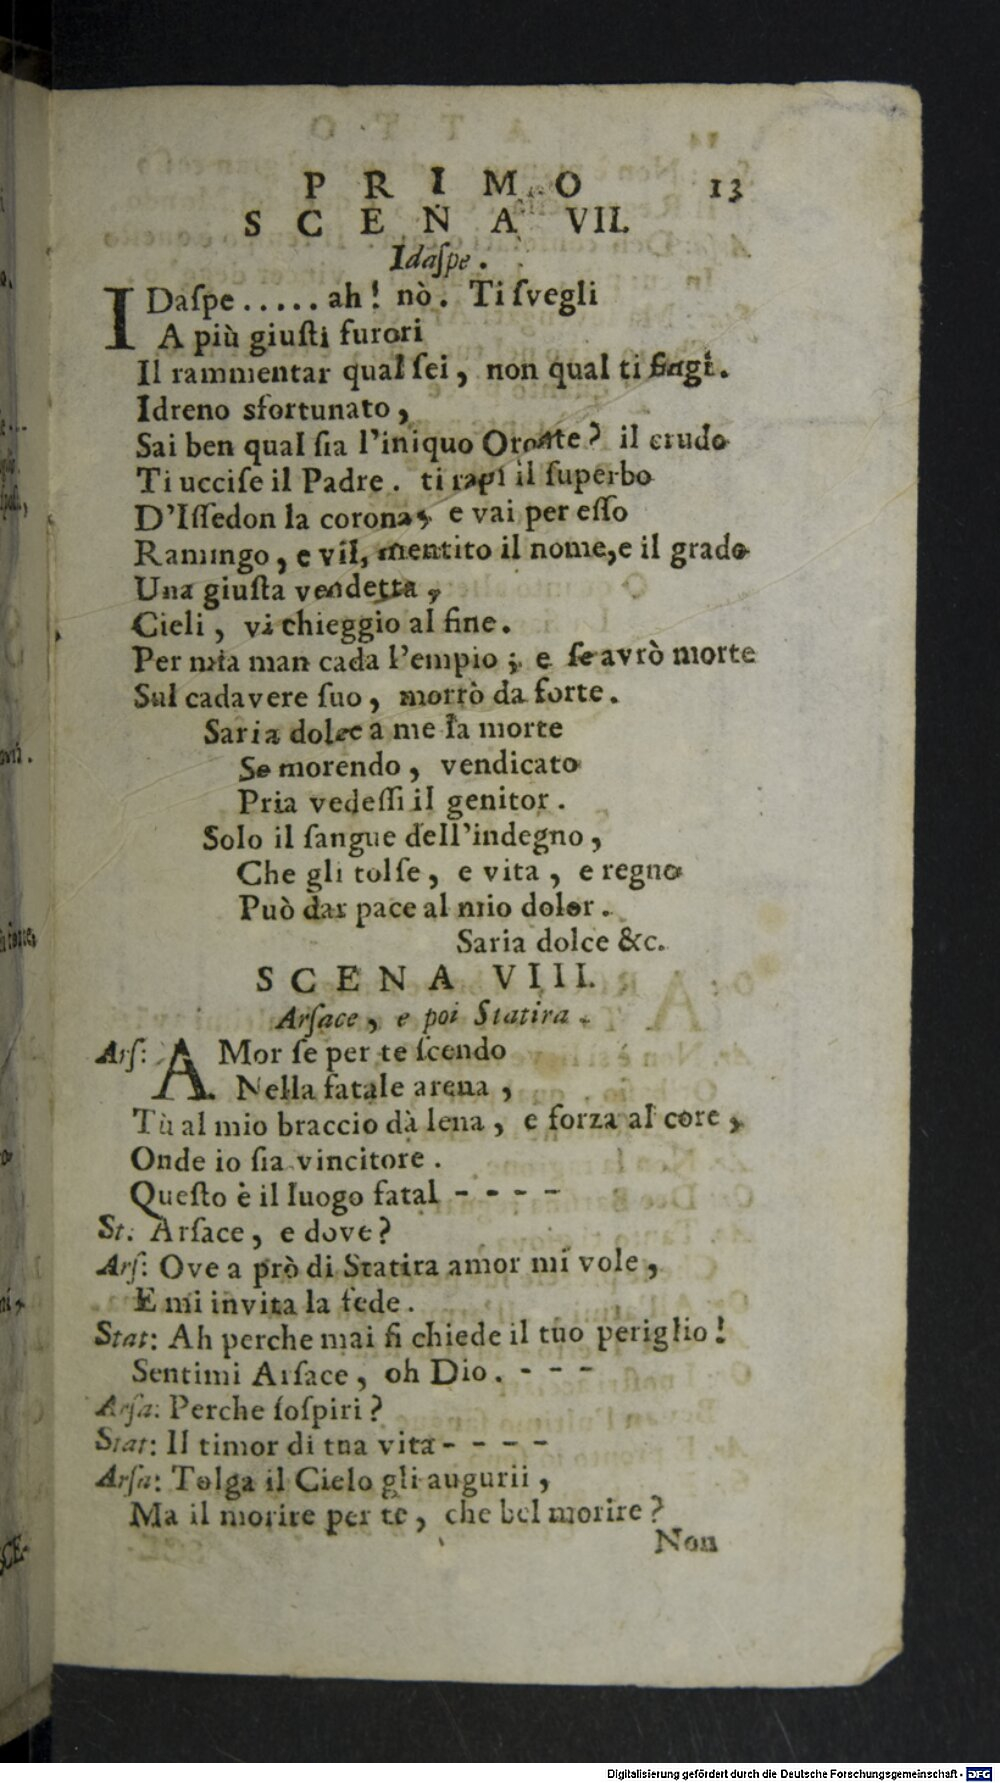 PRIMO 13
SCENA VII.
Idaſpe.
IDaſpe ..... ah! nò. Ti ſvegli
A più giuſti furori
Il rammentar qual ſei, non qual ti fingi.
Idreno sfortunato,
Sai ben qual ſia l'iniquo Oronte? il crudo
Ti ucciſe il Padre. ti rapì il ſuperbo
D'Iſſedon la corona, e vai per eſſo
Ramingo, e vil, mentito il nome, e il grado
Una giuſta vendetta,
Cieli, vi chieggio al fine.
Per mia man cada l'empio; e ſe avrò morte
Sul cadavere ſuo, morrò da forte.
Saria dolce a me la morte
Se morendo, vendicato
Pria vedeſſi il genitor.
Solo il ſangue dell'indegno,
Che gli tolſe, e vita, e regno
Può dar pace al mio dolor.
Saria dolce &c.
SCENA VIII.
Arſace, e poi Statira.
Arſ: AMor ſe per te ſcendo
Nella fatale arena,
Tù al mio braccio dà lena, e forza al core,
Onde io ſia vincitore.
Queſto è il luogo fatal - - - -
St. Arſace, e dove?
Arſ: Ove a prò di Statira amor mi vole,
E mi invita la fede.
Stat: Ah perche mai ſi chiede il tuo periglio!
Sentimi Arſace, oh Dio. - - -
Arſa: Perche ſoſpiri?
Stat: Il timor di tua vita - - - -
Arſa: Tolga il Cielo gli augurii,
Ma il morire per te, che bel morire?
Non
Digitalisierung gefördert durch die Deutsche Forschungsgemeinschaft - DFG